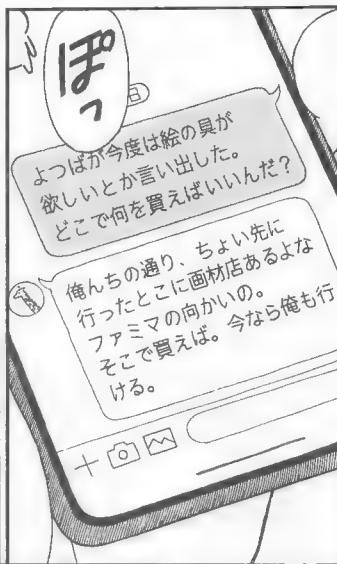 ぽっ
日
よつばが今度は絵の具が
欲しいとか言い出した。
どこで何を買えばいいんだ？
俺んちの通り、ちょい先に
行ったとこに画材店あるよな
ファミマの向かいの。
そこで買えば。今なら俺も行
ける。